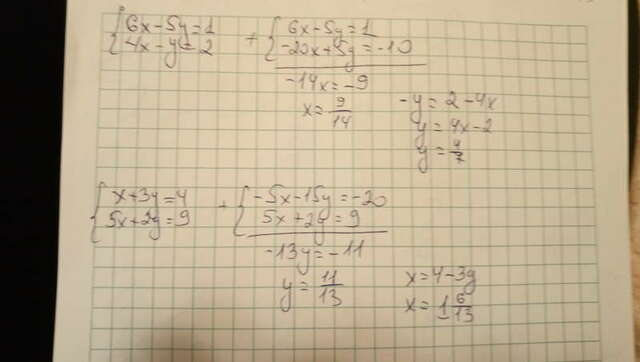 {6x-5y=1
4x-y=2
+ {6x-5y=1
-20x+5y=-10
-14x=-9
x=9/14
-y=2-4x
y=4x-2
y=4/7
{x+3y=4
5x+2y=9
+ {-5x-15y=-20
5x+2y=9
-13y=-11
y=11/13
x=4-3y
x=1 6/13